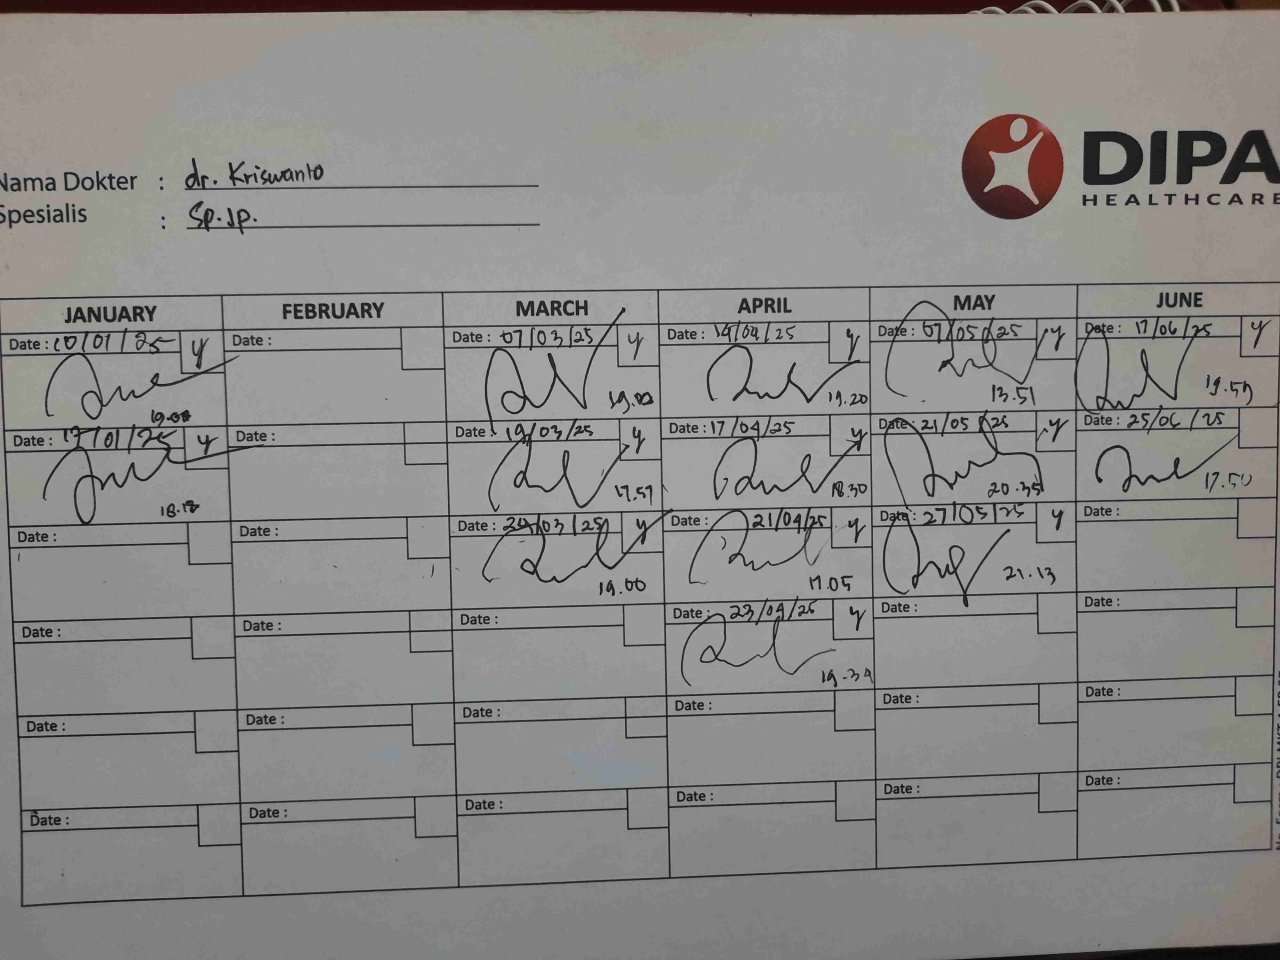 DIPA
HEALTHCARE
Nama Dokter : dr. Kriswanto
Spesialis : Sp.Jp.
JANUARY FEBRUARY MARCH APRIL MAY JUNE
Date : 10/01/25 y Date : Date : 07/03/25 y Date : 14/04/25 y Date : 07/05/25 y Date : 17/06/25 y
19.00 19.00 19.20 13.51 19.59
Date : 17/01/25 y Date : Date : 19/03/25 y Date : 17/04/25 y Date : 21/05/25 y Date : 25/06/25
18.18 17.57 18.30 20.35 17.50
Date : Date : Date : 20/03/25 y Date : 21/04/25 y Date : 27/05/25 y Date :
19.00 17.05 21.13
Date : Date : Date : Date : 23/04/25 y Date : Date :
19.39
Date : Date : Date : Date : Date : Date :
Date : Date : Date : Date : Date : Date :